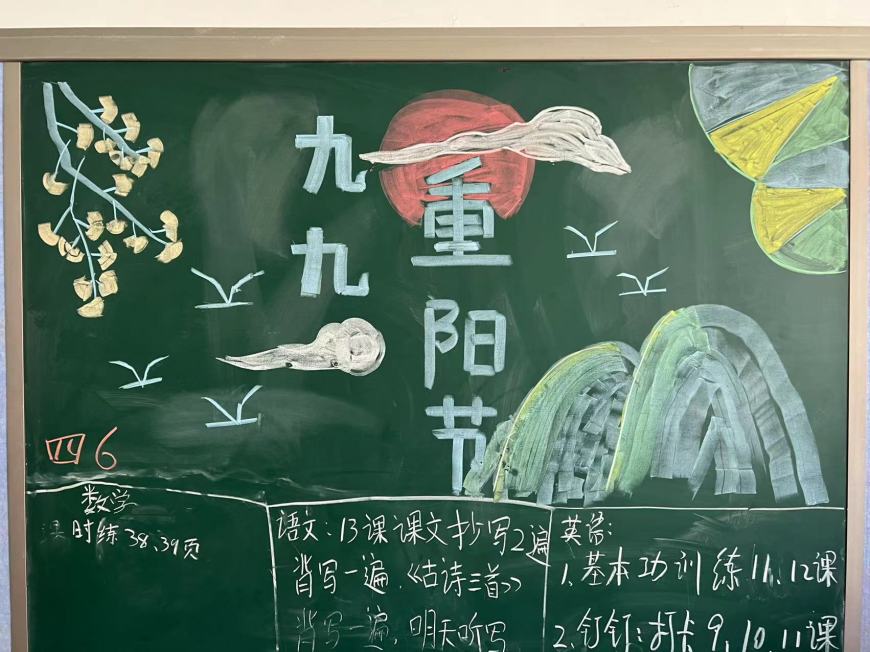 九九
重阳节
四6
数学
课时练38、39页
语文：13课课文抄写2遍
背写一遍、《古诗三首》
背写一遍，明天听写
英语：
1、基本功训练11、12课
2、钉钉：打卡9、10、11课